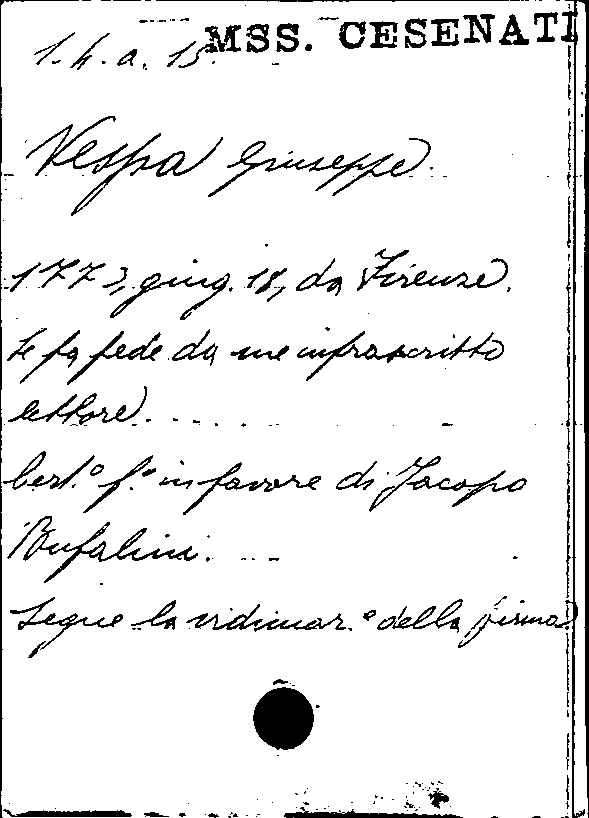 MSS. CESENATI
1.4.a.15.
Vespa Giuseppe.
1773, giug. 18, da Firenze.
Si fa fede da me infrascritto
lettore.....
Cert.° f.° in favore di Jacopo
Bufalini....
Segue la vidimaz.e della firma